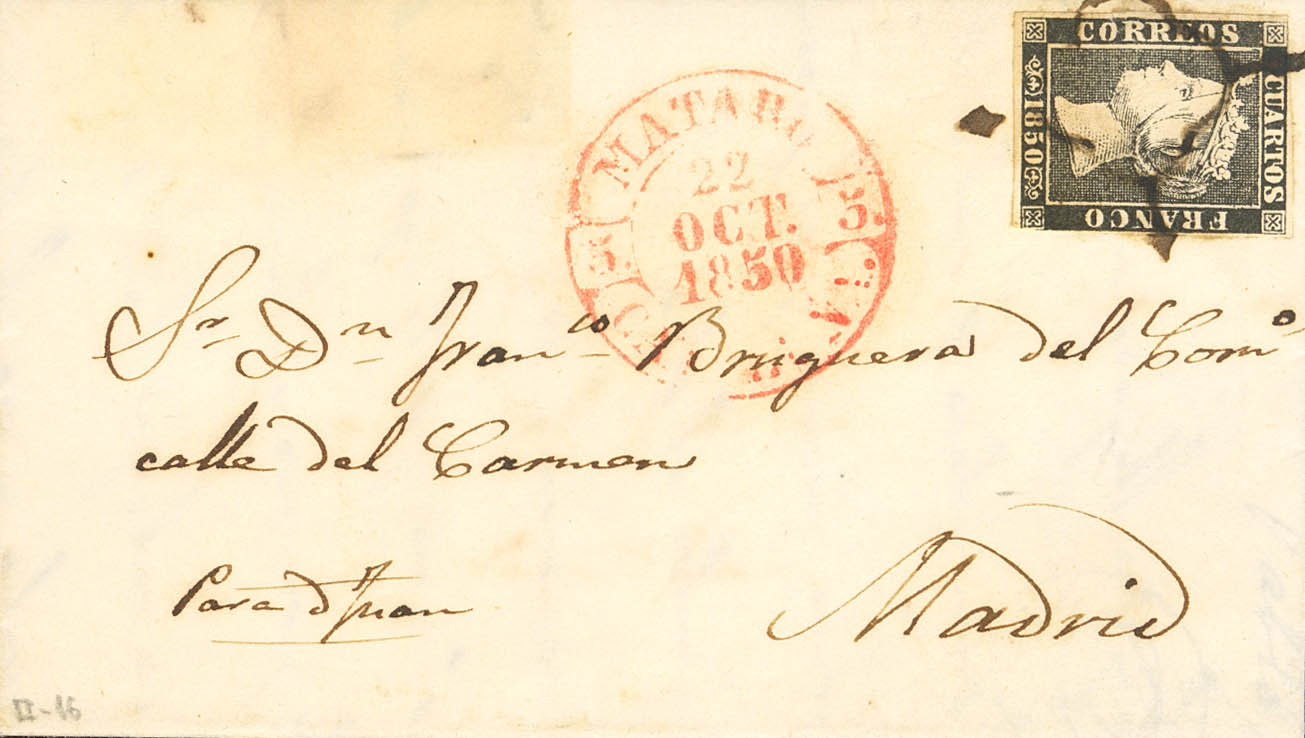 CORREOS
CUARTOS
FRANCO
1850
MATARO
22
OCT.
1850
5.
5.
Sr Dn Franco Bruguera del Como
calle del Carmen
Para d Juan
Madrid
II-16